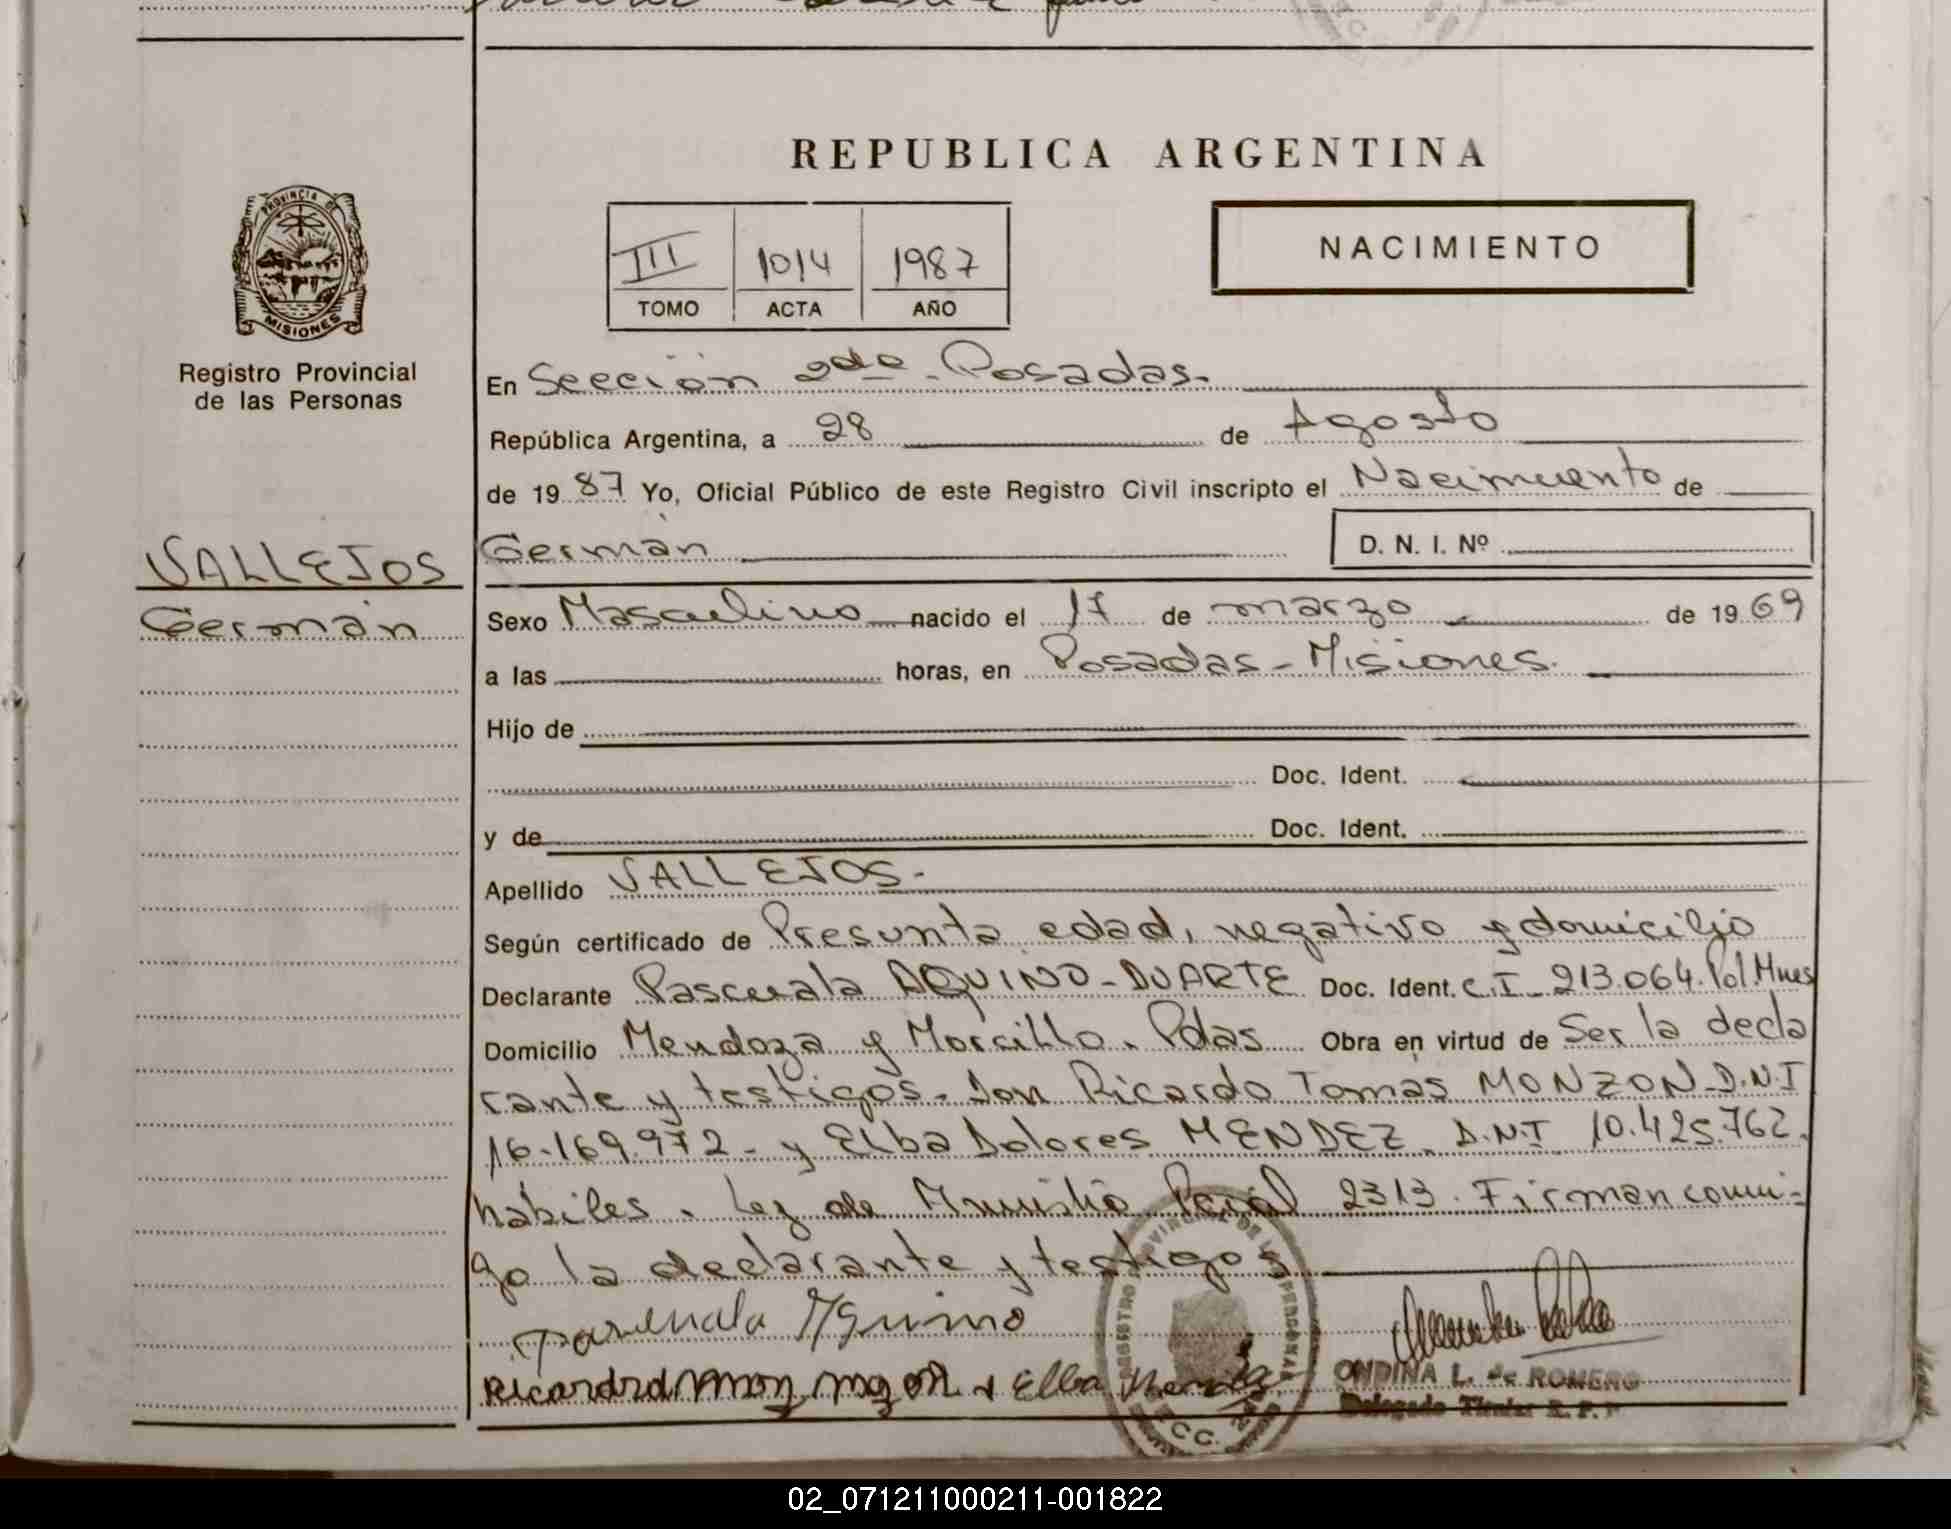 REPUBLICA ARGENTINA
PROVINCIA DE
MISIONES
Registro Provincial
de las Personas
III 1014 1987
TOMO ACTA AÑO
NACIMIENTO
En Sección 2da. Posadas.
República Argentina, a 28 de Agosto
de 1987 Yo, Oficial Público de este Registro Civil inscripto el Nacimiento de
VALLEJOS
Germán
Germán D. N. I. Nº
Sexo Masculino nacido el 17 de marzo de 1969
a las horas, en Posadas - Misiones.
Hijo de
Doc. Ident.
y de Doc. Ident.
Apellido VALLEJOS.
Según certificado de Presunta edad, negativo y domicilio
Declarante Pascuala AQUINO - DUARTE Doc. Ident. C.I. 213.064. Pol. Mnes
Domicilio Mendoza y Morcillo. Pdas Obra en virtud de Ser la decla
rante y testigos. Don Ricardo Tomas MONZON D.N.I
16.169.972 - y Elba Dolores MENDEZ. D.N.I 10.425.762.
habiles. Ley de Pcial 2313. Firman conmi=
go la declarante y testigos
Aquino
Elba
ONDINA L. de ROMERO
Delegado Titular R. P. P
02_071211000211-001822